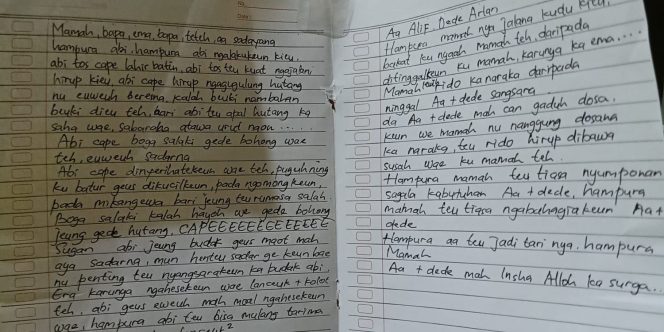 No.
Date
Mamah, bapa, ema, bapa, teteh, aa sadayana
hampura abi, hampura abi ngalakukeun kieu,
abi tos cape lahir batin, abi tos teu kuat ngajalani
hirup kieu, abi cape hirup ngagugulung hutang
nu euweuh berema, kalah beuki nambahan
beuki dieu teh, bari abi teu apal hutang ka
saha wae, sabaraha atawa urid naon .....
Abi cape boga salaki gede bohong wae
teh, euweuh sadarna
Abi cape dinyerihatekeun wae teh, puguh ning
ku batur geus dikucilkeun, pada ngomongkeun,
pada mikangewa bari jeung teu rumasa salah.
Boga salaki kalah hayoh we gede bohong
jeung gede hutang, CAPEEEEEEEEEEEEE
Sugan abi jeung budak geus maot mah
aya sadarna, mun henteu sadar ge keun bae
nu penting teu nyangsarakeun ka budak abi,
Era karunya ngahesekeun wae lanceuk + kolot
teh, abi geus euweuh mah moal ngahesekeun
wae, hampura abi teu bisa mulang tarima
2
Aa Alif Dede Arlan
Hampura mamah nya jalana kudu kieu,
bakat ku nyaah mamah teh, daripada
ditinggalkeun ku mamah, karunya ka ema....
Mamah rido ka naraka daripada
ninggal Aa + dede sangsara
da Aa + dede mah can gaduh dosa,
keun we mamah nu nanggung dosana
ka naraka, teu rido hirup dibawa
susah wae ku mamah teh.
Hampura mamah teu tiasa nyumponan
sagala kabutuhan Aa + dede, hampura
mamah teu tiasa ngabahagiakeun Aa +
dede
Hampura aa teu jadi tari nya, hampura
Mamah
Aa + dede mah Insha Alloh ka surga...